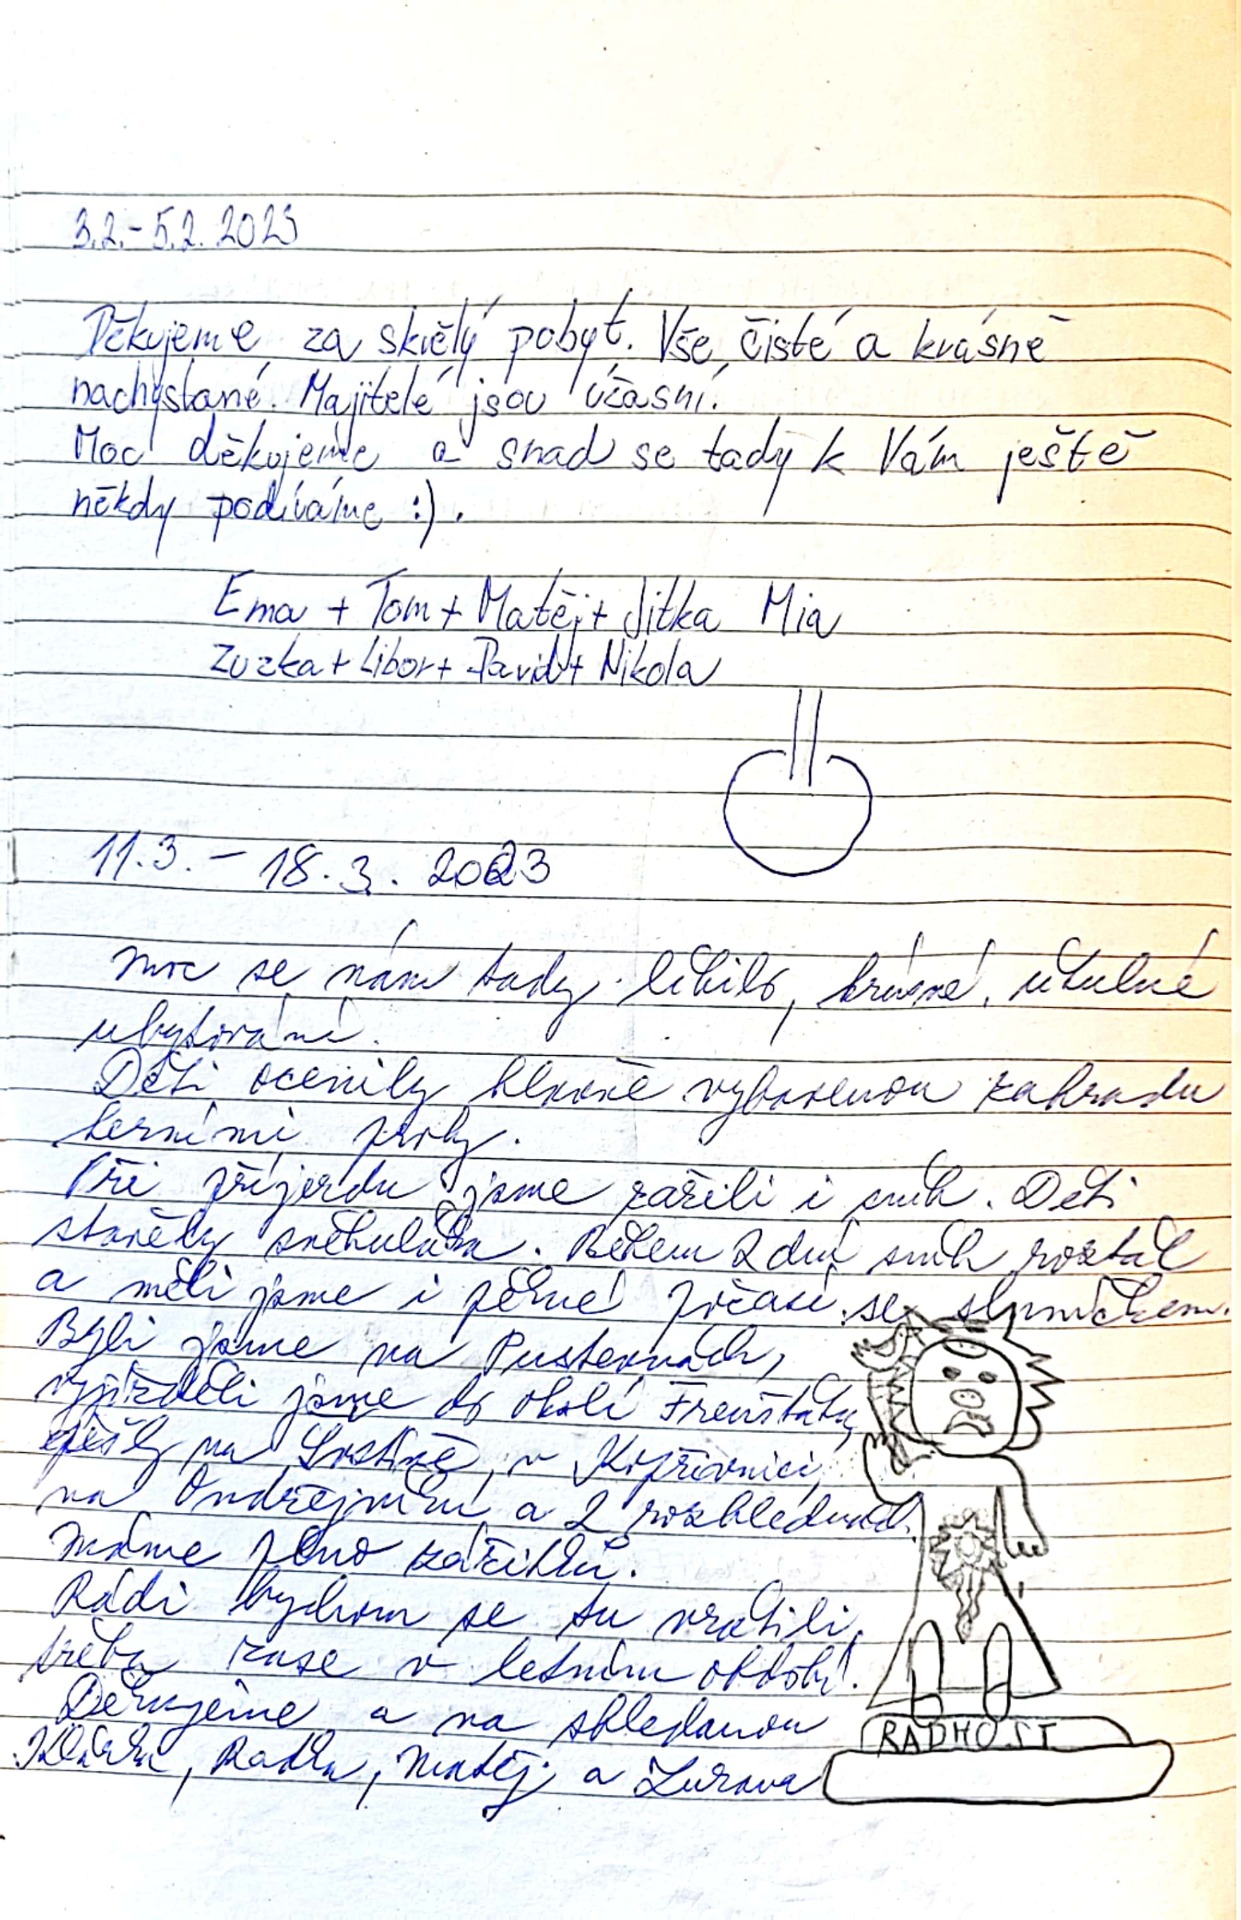 3.2.-5.2. 2023
Děkujeme za skvělý pobyt. Vše čisté a krásně
nachystané. Majitelé jsou úžasní.
Moc děkujeme a snad se tady k Vám ještě
někdy podíváme :).
Ema + Tom + Matěj + Jitka Mia
Zuzka + Libor + David + Nikola
11.3. - 18.3. 2023
Moc se nám tady líbilo, krásné, útulné
ubytování.
Děti ocenily hlavně vybavenou zahradu
herními prvky.
Při příjezdu jsme zažili i sníh. Děti
stavěly sněhuláka. Během 2 dní sníh roztál
a měli jsme i pěkné počasí se sluníčkem.
Byli jsme na Pustevnách,
vyjížděli jsme do okolí Frenštátu,
pěšky na v Kopřivnici,
na Ondřejníku a 2 rozhlednách.
Máme plno zážitků.
Rádi bychom se tu vrátili,
třeba zase v letním období.
Děkujeme a na shledanou
Radka, Matěj a
RADHOST